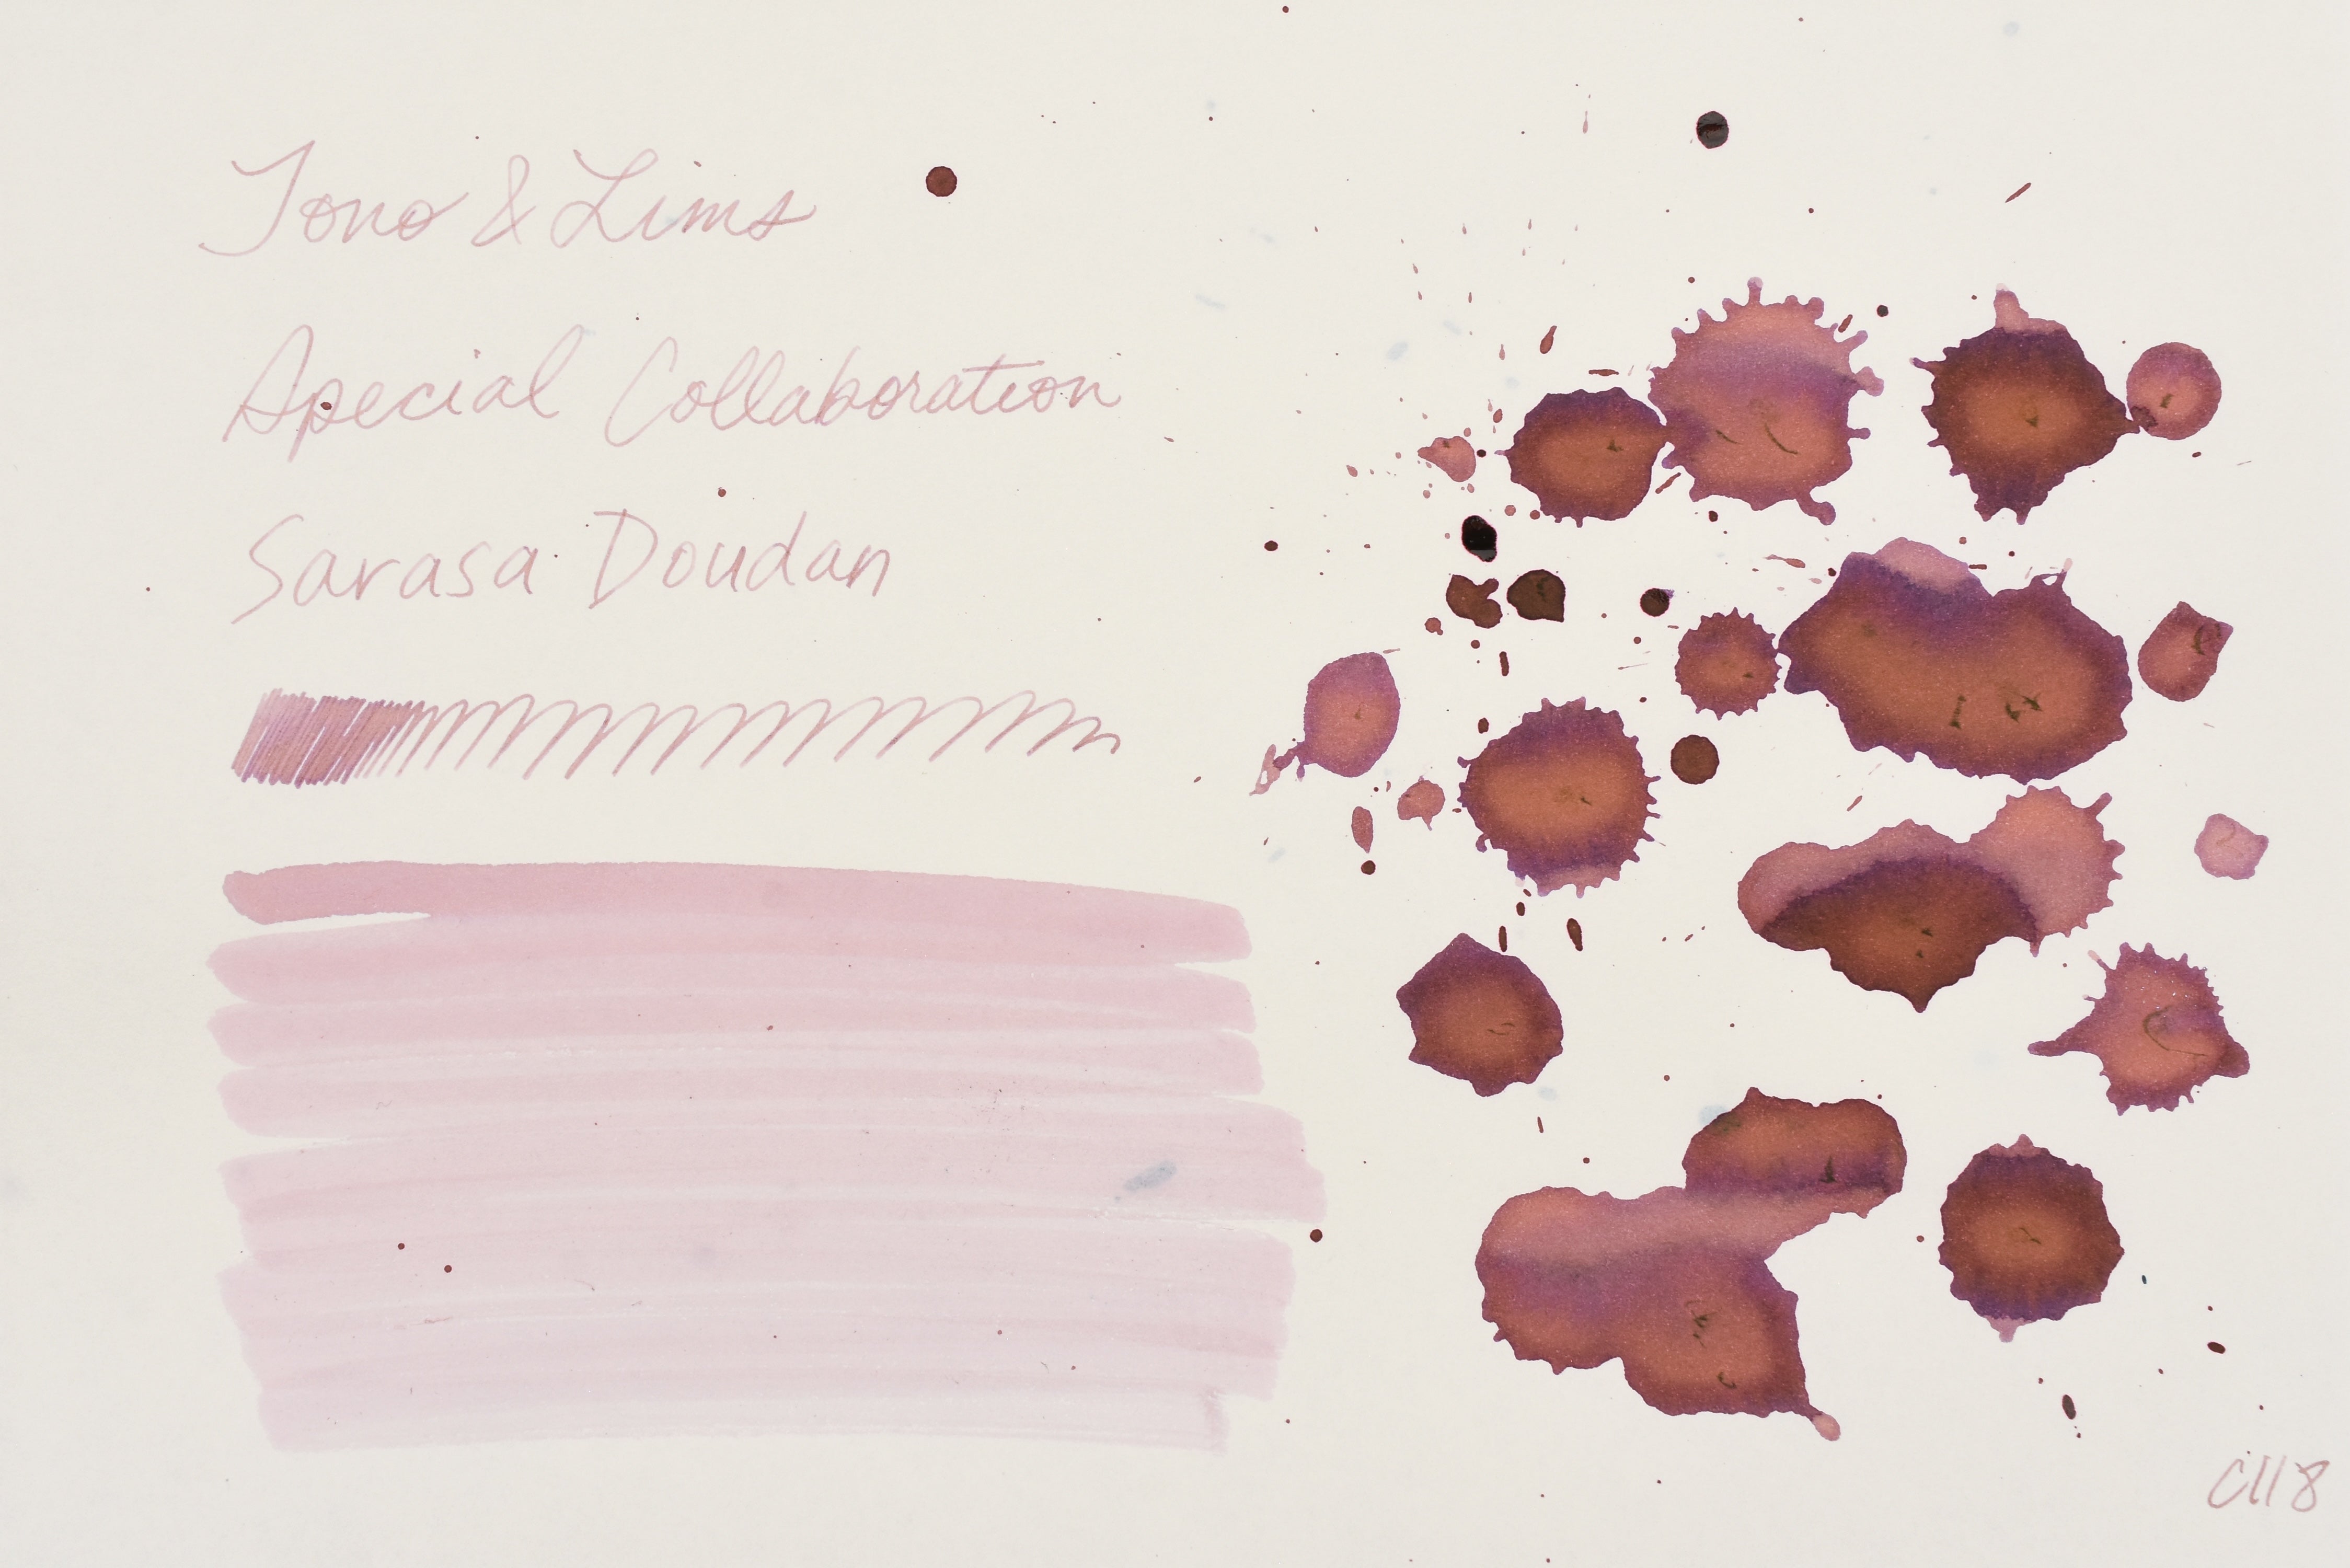 Tono & Lims
Special Collaboration
Sarasa Doudan
C118